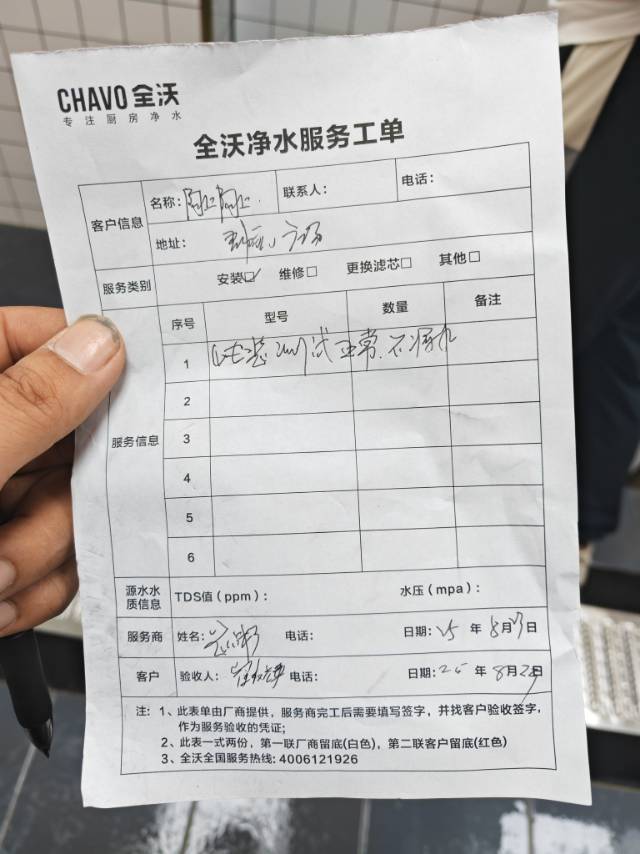 CHAVO 全沃
专注厨房净水
全沃净水服务工单
客户信息 名称: 联系人: 电话:
地址: 广场
服务类别 安装☑ 维修□ 更换滤芯□ 其他□
服务信息 序号 型号 数量 备注
1 安装测试正常.不漏水
2
3
4
5
6
源水水质信息 TDS值（ppm）: 水压（mpa）:
服务商 姓名: 电话: 日期: 25 年 8月23日
客户 验收人: 电话: 日期: 25 年 8月23日
注: 1、此表单由厂商提供，服务商完工后需要填写签字，并找客户验收签字，
作为服务验收的凭证;
2、此表一式两份，第一联厂商留底(白色)，第二联客户留底(红色)
3、全沃全国服务热线: 4006121926